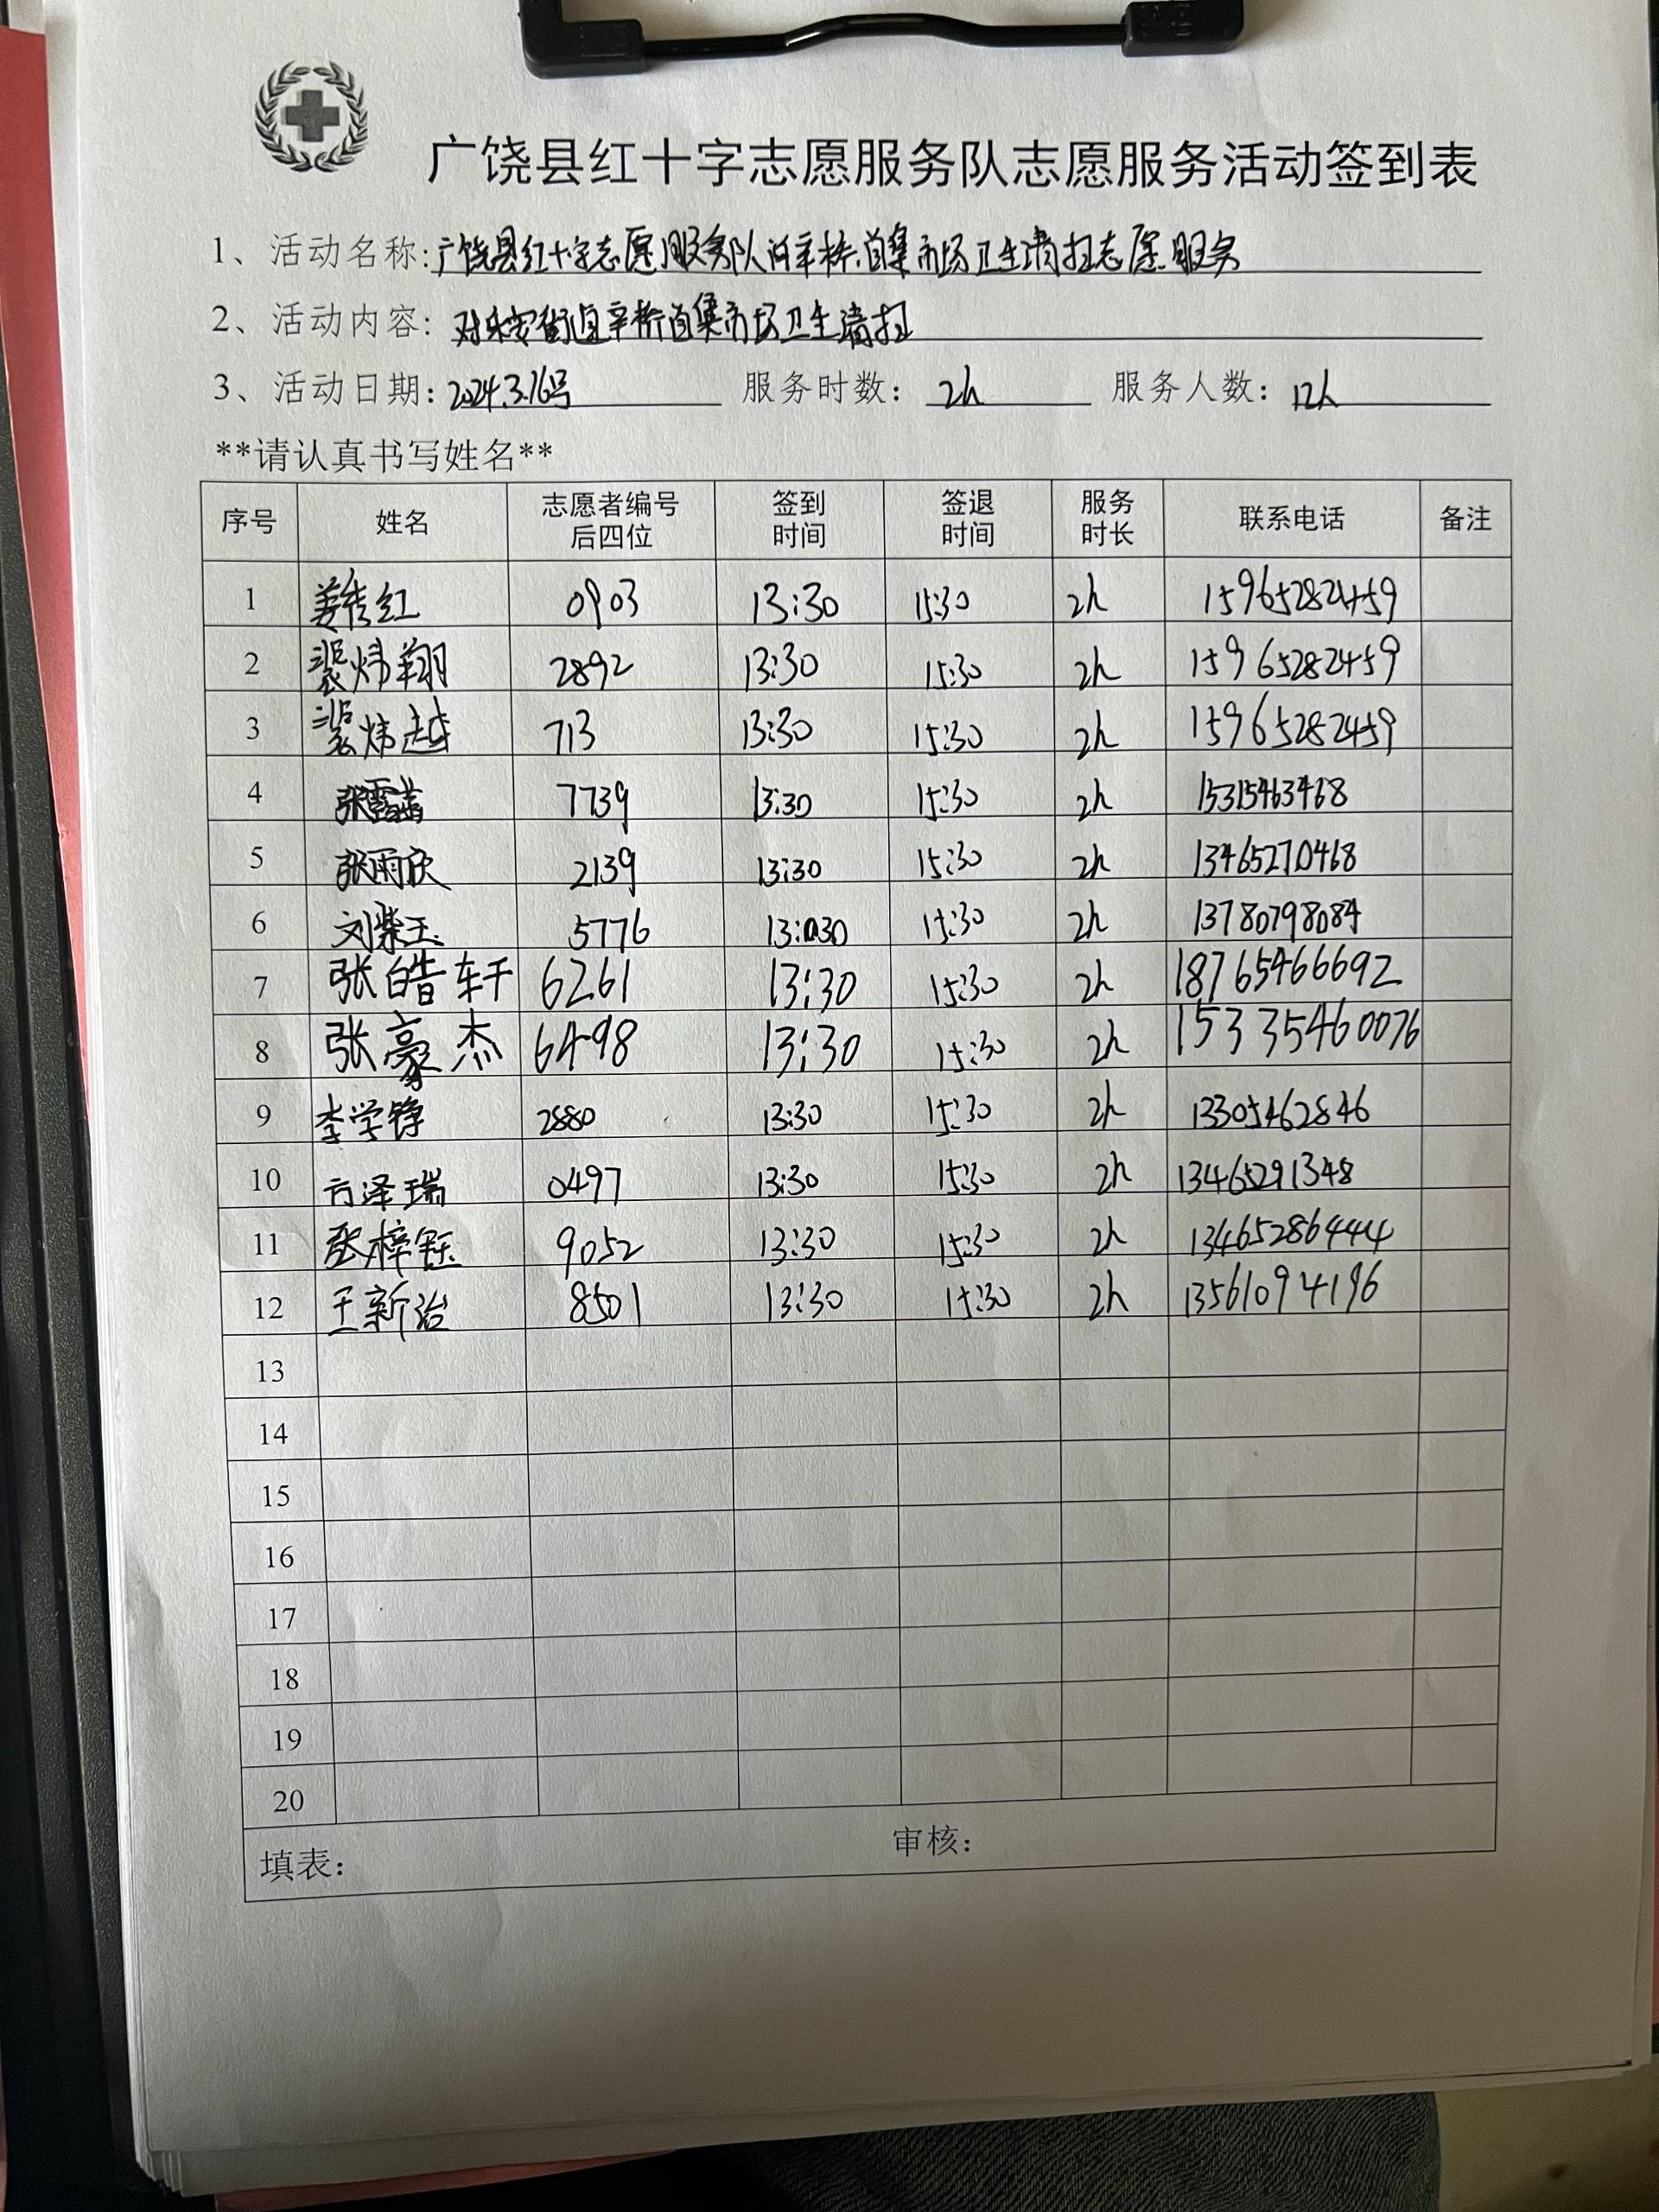 广饶县红十字志愿服务队志愿服务活动签到表
1、活动名称:广饶县红十字志愿服务队 辛桥 集市场卫生清扫志愿服务
2、活动内容: 对乐安街道辛桥 集市场卫生清扫
3、活动日期: 2024.3.16号 服务时数: 2h 服务人数: 12人
**请认真书写姓名**
序号 姓名 志愿者编号后四位 签到时间 签退时间 服务时长 联系电话 备注
1 姜秀红 0903 13:30 15:30 2h 15965282459
2 裴炜翔 2892 13:30 15:30 2h 15965282459
3 裴炜越 713 13:30 15:30 2h 15965282459
4 张露 7739 13:30 15:30 2h 15315463468
5 张雨欣 2139 13:30 15:30 2h 13465270468
6 刘紫玉 5776 13:30 15:30 2h 13780798084
7 张皓轩 6261 13:30 15:30 2h 18765466692
8 张豪杰 6498 13:30 15:30 2h 15335460076
9 李学铮 2880 13:30 15:30 2h 13305462846
10 方泽瑞 0497 13:30 15:30 2h 13465291348
11 张梓钰 9052 13:30 15:30 2h 134652864444
12 王新治 8501 13:30 15:30 2h 13561094196
13
14
15
16
17
18
19
20
填表: 审核: